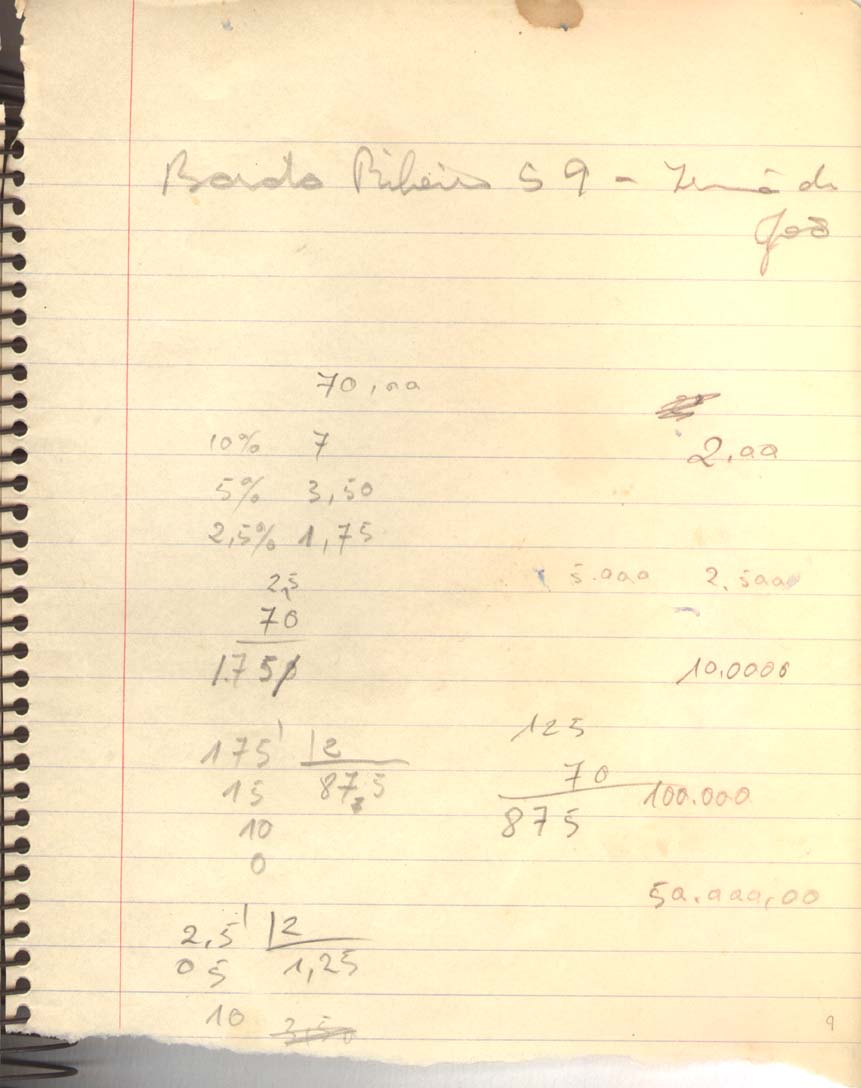 Ribeiro 59 -
70,00
2,00
10% 7
5% 3,50
2,5% 1,75
5.000 2.500
2,5
70
1.750
10.0000
175 2
15 87,5
10
0
125
70
875
100.000
50.000,00
2,5 2
05 1,25
10 3,50
9